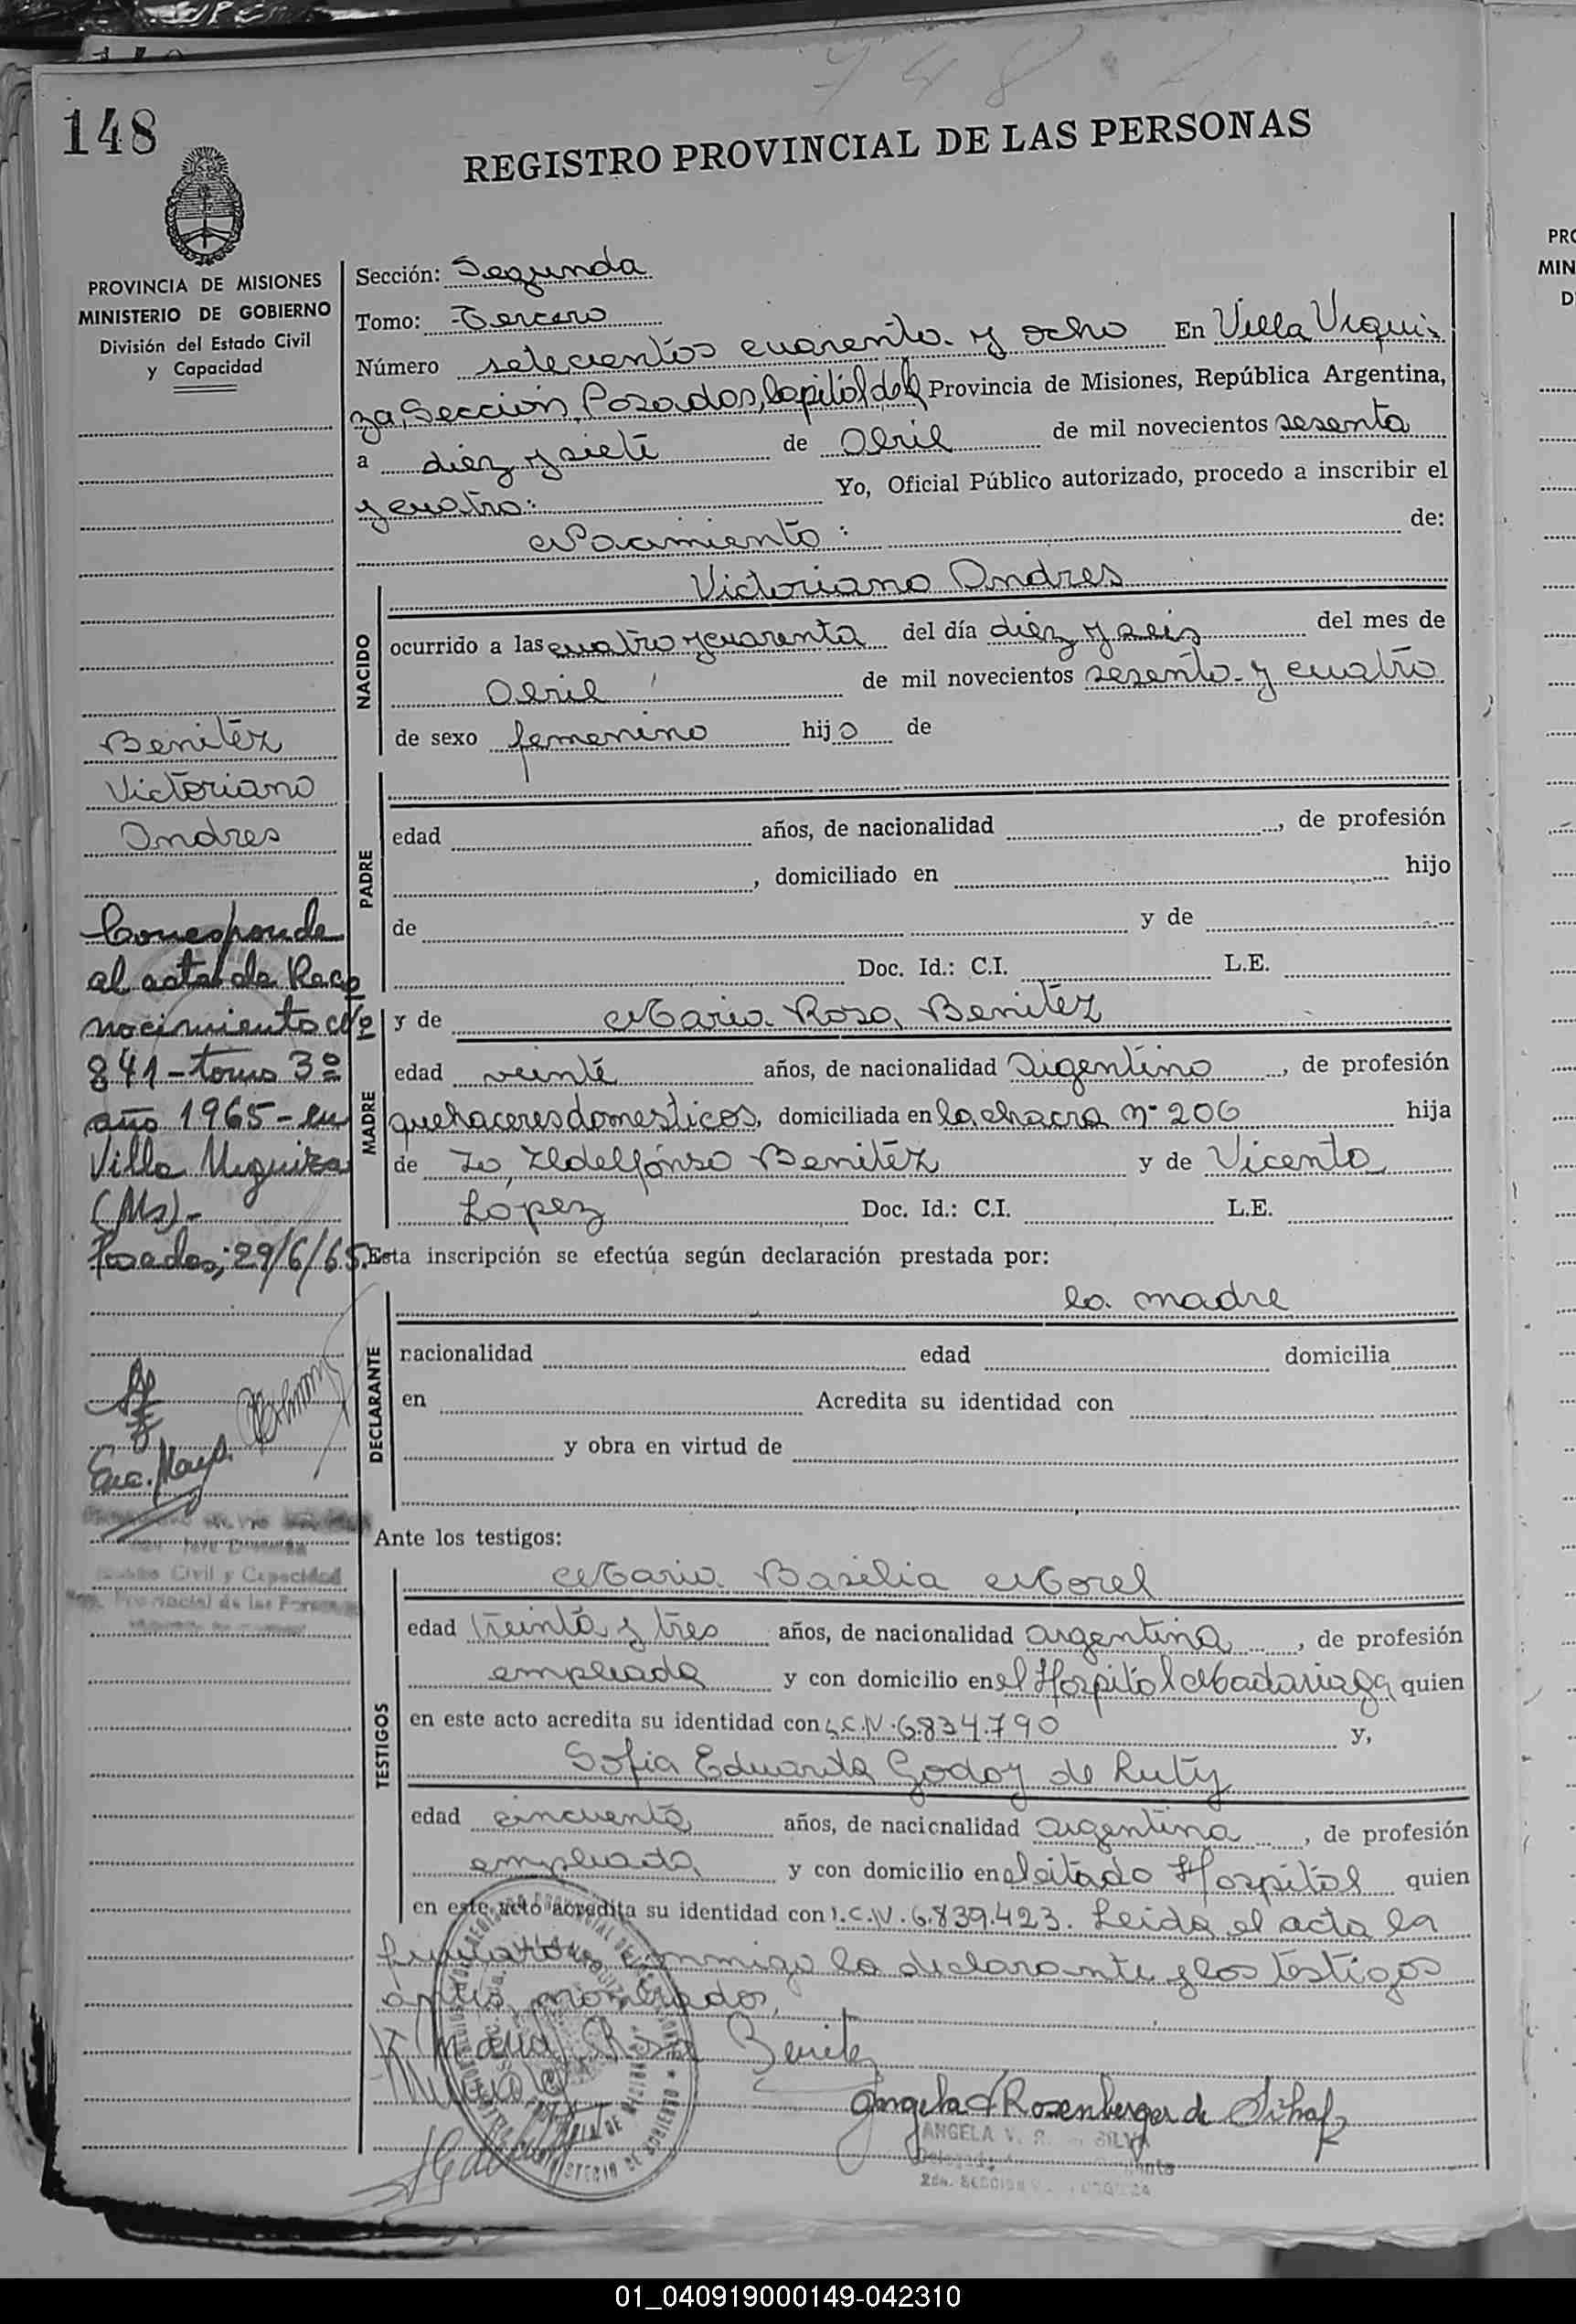 748
148
REGISTRO PROVINCIAL DE LAS PERSONAS
PROVINCIA DE MISIONES
MINISTERIO DE GOBIERNO
División del Estado Civil
y Capacidad
Sección: Segunda
Tomo: Tercero
Número setecientos cuarenta y ocho En Villa Urqui-
za, Sección, Posadas, Capital de la Provincia de Misiones, República Argentina,
a diez y siete de Abril de mil novecientos sesenta
y cuatro: Yo, Oficial Público autorizado, procedo a inscribir el
Nacimiento: de:
NACIDO
Victoriano Andres
ocurrido a las cuatro y cuarenta del día diez y seis del mes de
Abril de mil novecientos sesenta y cuatro
de sexo femenino hijo de
Benitez
Victoriano
Andres
PADRE
edad años, de nacionalidad , de profesión
, domiciliado en hijo
de y de
Doc. Id.: C.I. L.E.
Corresponde
al acta de Reco
nocimiento Nº
841 - tomo 3º
año 1965 - en
Villa Urquiza
(Ms) -
Posadas; 29/6/65.
MADRE
y de Maria Rosa Benitez
edad veinte años, de nacionalidad Argentino, de profesión
quehaceres domesticos, domiciliada en la chacra nº 206 hija
de Ildelfonso Benitez y de Vicenta
Lopez Doc. Id.: C.I. L.E.
Esta inscripción se efectúa según declaración prestada por:
DECLARANTE
la madre
nacionalidad edad domicilia
en Acredita su identidad con
y obra en virtud de
Enc. Mayo
Civil y Capacidad
Provincial de las Personas
Ante los testigos:
TESTIGOS
Maria Basilia Morel
edad treinta y tres años, de nacionalidad argentina, de profesión
empleada y con domicilio en el Hospital Madariaga quien
en este acto acredita su identidad con L.C.N. 6.834.790 y,
Sofia Eduarda Godoy de Ruty
edad cincuenta años, de nacionalidad argentina, de profesión
empleada y con domicilio en el citado Hospital quien
en este acto acredita su identidad con L.C.N. 6.839.423. Leida el acta la
firmaron conmigo la declarante y los testigos
antes nombrados,
Maria Rosa Benitez
Angela V. Rosenberger de Silva
ANGELA V. R. DE SILVA
2da. SECCION
01_040919000149-042310